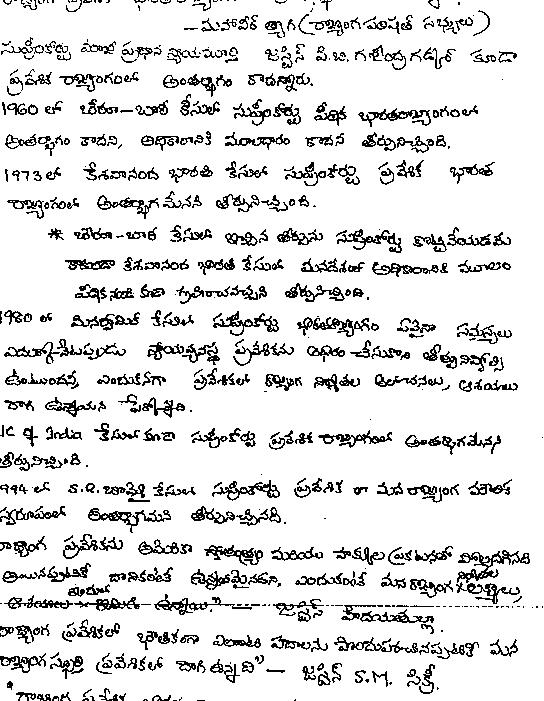 – మహావీర్ త్యాగి (రాజ్యాంగ పరిషత్ సభ్యులు)
సుప్రీంకోర్టు మాజీ ప్రధాన న్యాయమూర్తి జస్టిస్ పి.బి. గజేంద్రగడ్కర్ కూడా
ప్రవేశిక రాజ్యాంగంలో అంతర్భాగం కాదన్నారు.
1960 లో బెరూ–బారి కేసులో సుప్రీంకోర్టు పీఠిక భారతరాజ్యాంగంలో
అంతర్భాగం కాదని, అధికారానికి మూలాధారం కాదని తీర్పునిచ్చింది.
1973 లో కేశవానంద భారతి కేసులో సుప్రీంకోర్టు ప్రవేశిక భారత
రాజ్యాంగంలో అంతర్భాగమేనని తీర్పునిచ్చింది.
* బెరూ–బారి కేసులో ఇచ్చిన తీర్పును సుప్రీంకోర్టు కొట్టివేయడమే
కాకుండా కేశవానంద భారతి కేసులో మనదేశంలో అధికారానికి మూలం
పీఠిక నుండి కూడా గ్రహించవచ్చని తీర్పునిచ్చింది.
1980 లో మినర్వామిల్ కేసులో సుప్రీంకోర్టు భారతరాజ్యాంగం ఏదైనా సమస్యలు
ఎదుర్కొనేటప్పుడు న్యాయవ్యవస్థ ప్రవేశికను ఆధారం చేసుకొని తీర్పునివ్వాల్సి
ఉంటుందన్న, ఎందుకనగా ప్రవేశికలో రాజ్యాంగ నిర్మాతల ఆలోచనలు, ఆశయాలు
దాగి ఉన్నాయని పేర్కొన్నది.
IC of India కేసులో కూడా సుప్రీంకోర్టు ప్రవేశిక రాజ్యాంగంలో అంతర్భాగమేనని
తీర్పునిచ్చింది.
1994 లో S.R. బొమ్మై కేసులో సుప్రీంకోర్టు ప్రవేశిక రా మన రాజ్యాంగ మౌలిక
స్వరూపంలో అంతర్భాగమని తీర్పునిచ్చినది.
రాజ్యాంగ ప్రవేశికను అమెరికా స్వాతంత్ర్యం మరియు హక్కుల ప్రకటనతో పోల్చదగినది
అయినప్పటికీ దానికంటే ఉన్నతమైనదని, ఎందుకంటే మన రాజ్యాంగ నిర్మాతల లక్ష్యాలు,
ఆశయాలు ఇందులో ఉన్నాయి." — జస్టిస్ హిదయతుల్లా.
రాజ్యాంగ ప్రవేశికలో భౌతికంగా ఎలాంటి పదాలను పొందుపరచినప్పటికీ మన
రాజ్యాంగ స్ఫూర్తి ప్రవేశికలో దాగి ఉన్నది" — జస్టిస్ S.M. సిక్రీ.